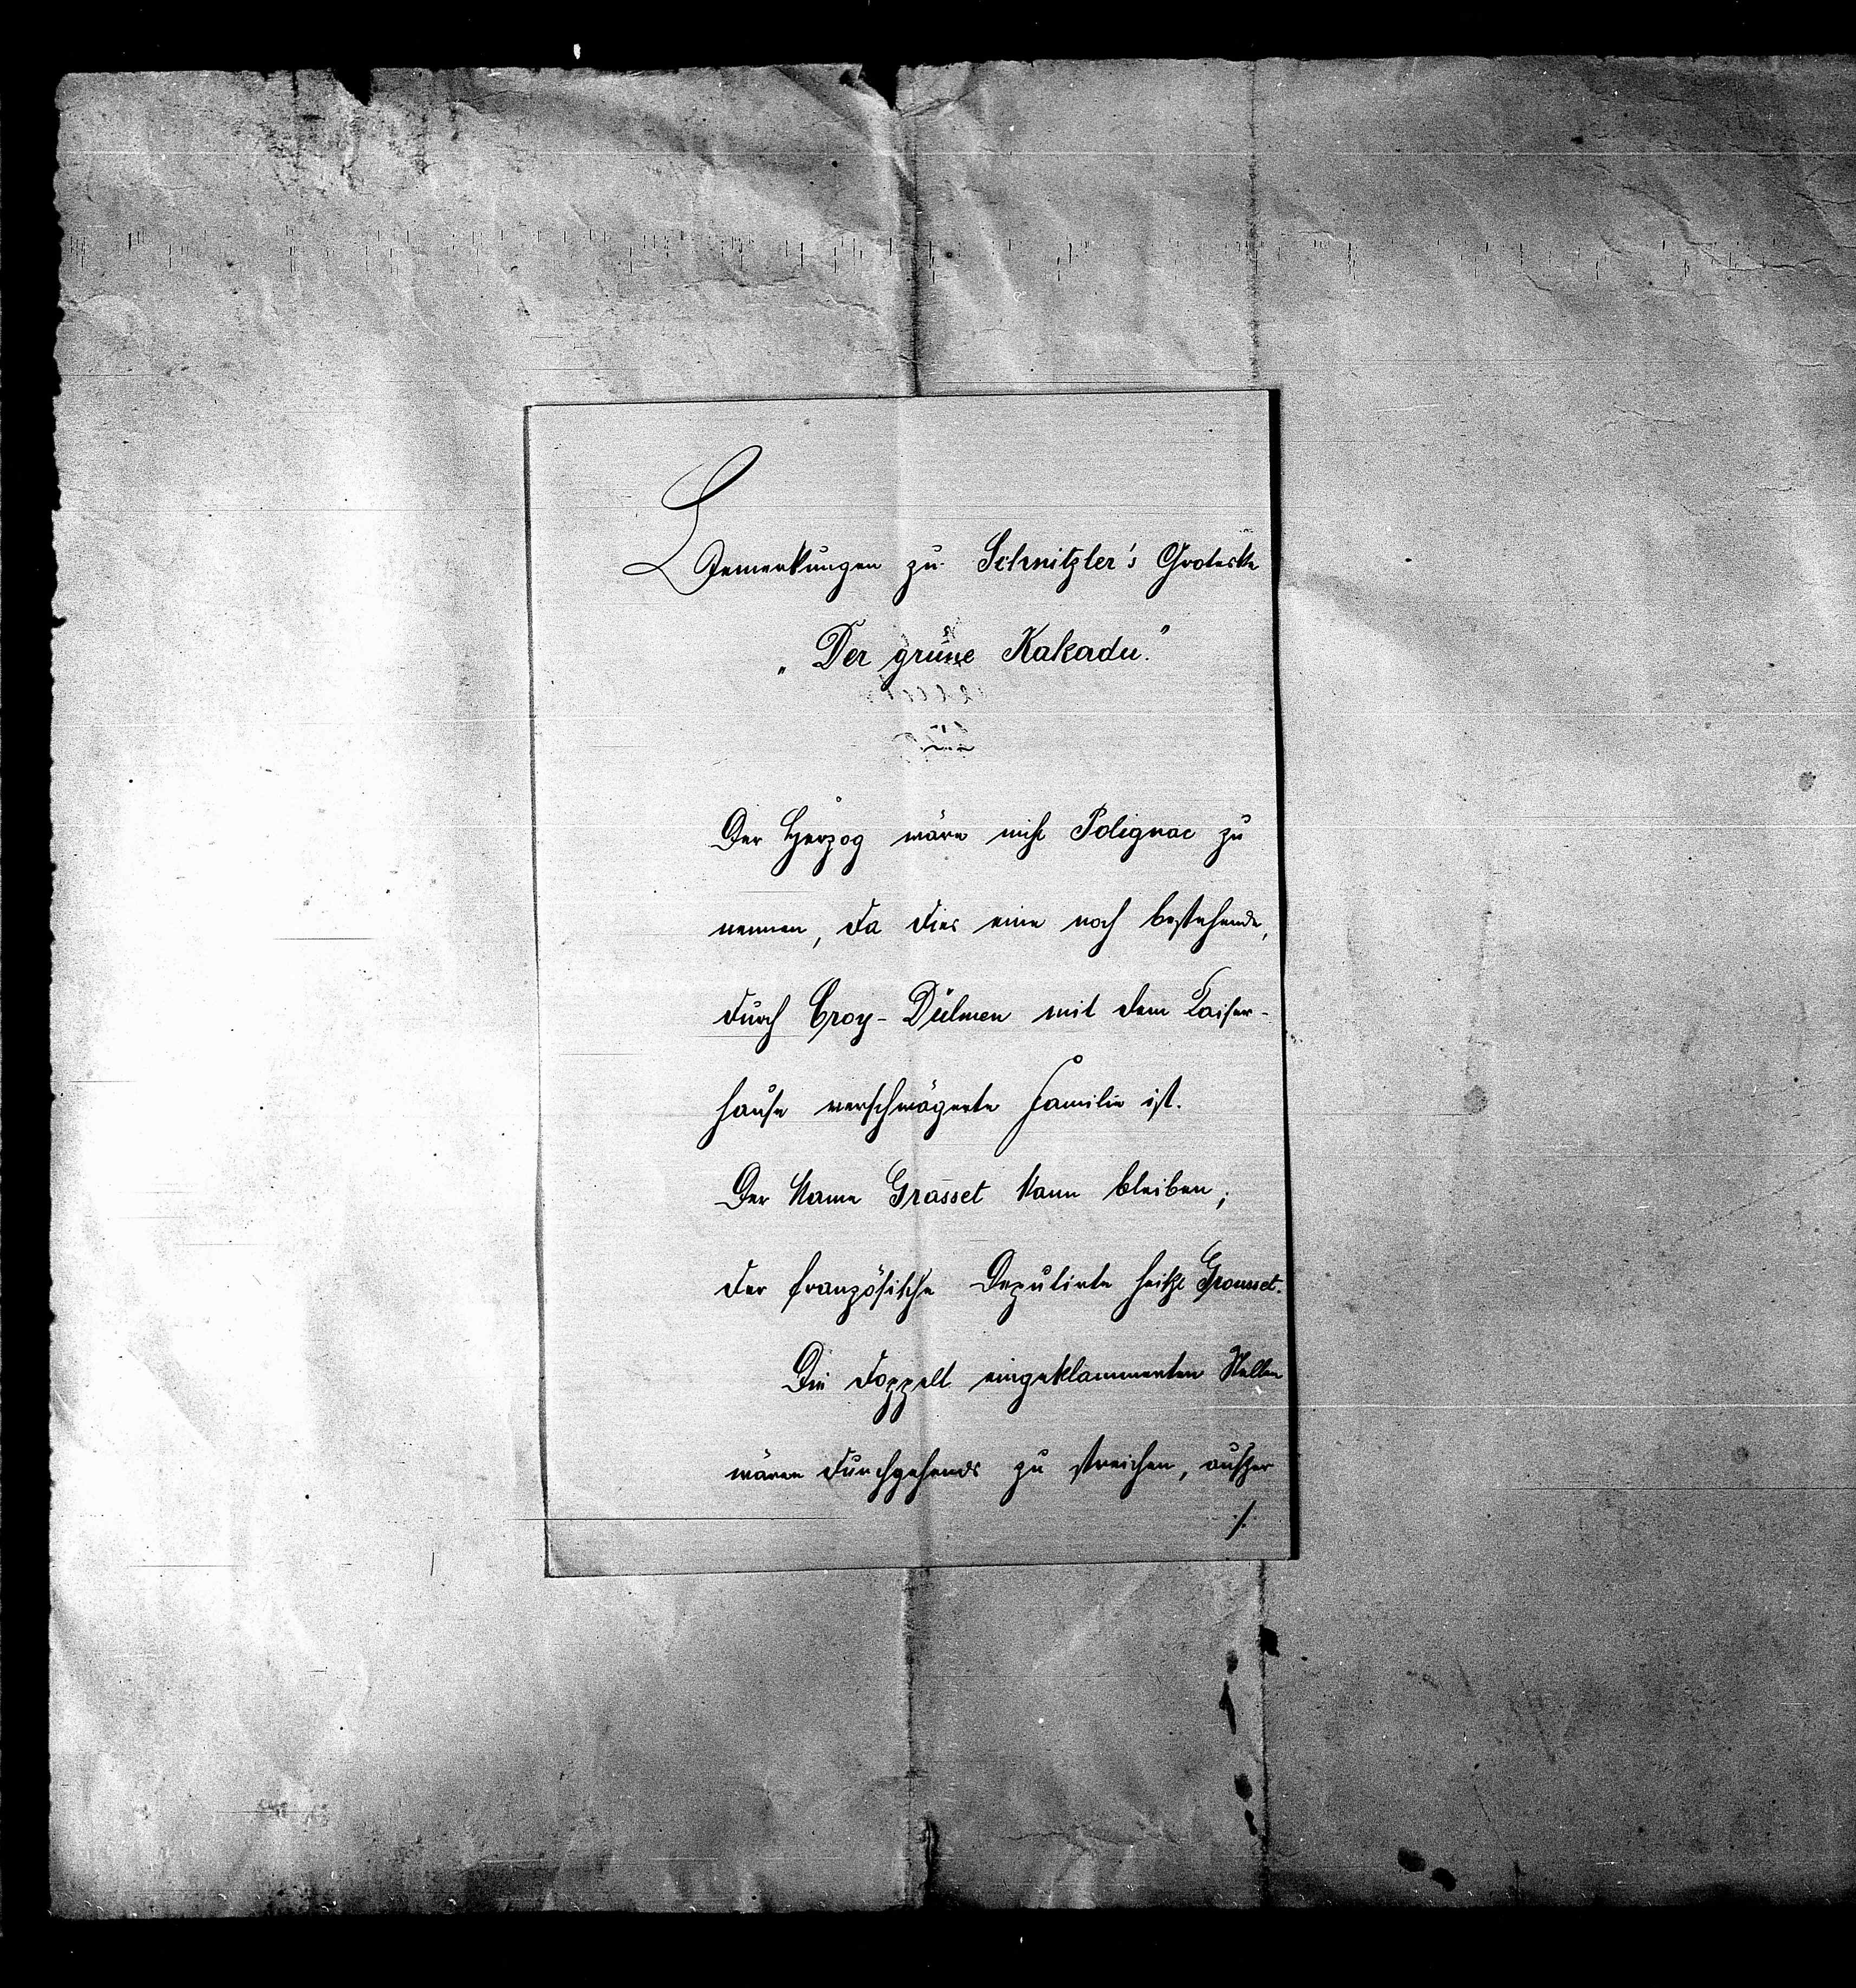 Bemerkungen zu Schnitzler's Groteske
„Der grüne Kakadu."
Der Herzog wäre nicht Polignac zu
nennen, da dies eine noch bestehende,
durch Croy-Dülmen mit dem Kaiser-
hause verschwägerte Familie ist.
Der Name Grasset kann bleiben;
der französische Deputirte heißt Grousset.
Die doppelt eingeklammerten Stellen
wären durchgehends zu streichen, außer
./.